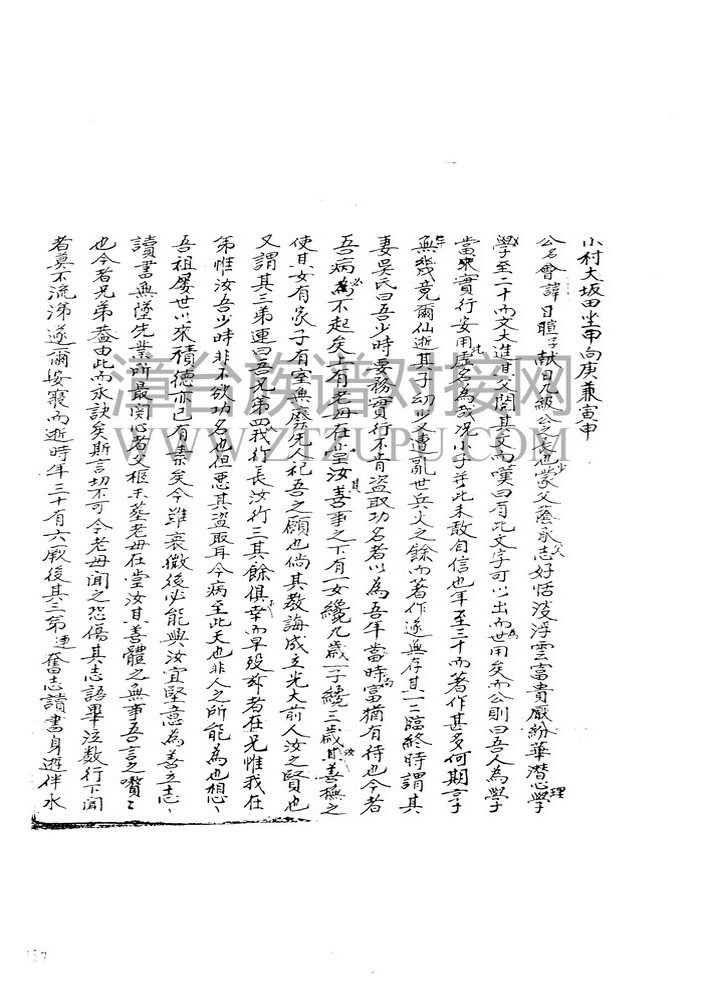 小村大坂田坐甲向庚兼寅申
公名會諱日暄子献日九級公之長也少蒙父蔭永志好恬淡浮雲富貴厭紛華潜心學理
學至二十而文大進其父閱其文而嘆曰有此文字可以出而為世用矣而公則曰吾人為學
當求實行安用此虛名為哉况小子于此未敢自信也年至三十而著作甚多何期享年
無幾竟爾仙逝其子幼少又遭亂世兵火之餘而著作遂無存其一二臨終時謂其
妻吳氏曰吾少時妄務實行不肯盗取功名者以為吾年當時富尚猶有待也今者
吾病必為不起矣上有老母在堂汝其善事之下有一女纔九歲一子纔三歲汝其善撫之
使其女有家子有室無廢先人祀吾之願也倘其教誨成立光大前人汝之賢也
又謂其三弟連曰吾兄弟四人我作長汝行三其餘俱不幸而早殁者在兄惟我在
弟惟汝吾少時非不欲功名也但惡其盜取耳今病至此天也非人之所能為也想〻
吾祖屡世以來積德亦已有素矣今雖衰微後必能興汝宜堅意為善立志〻
讀書無墜先業所最関心者父柩未葬老母在堂汝其善體之無事吾言之嘖〻
也今者兄弟蓋由此而永訣矣斯言切不可令老母聞之恐傷其志語畢泣数行下聞
者莫不流涕遂爾安寢而逝時年三十有六厥後其三弟連奮志讀書身遊伴水
漳台族谱对接网
WWW.ZTZUPU.COM